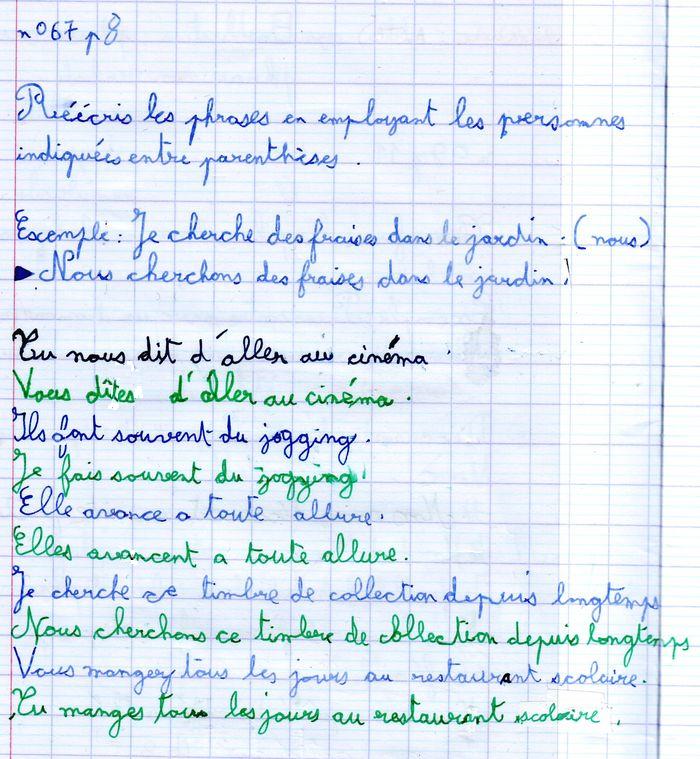 n°67 p8
Réécris les phrases en employant les personnes
indiquées entre parenthèses .
Exemple : Je cherche des fraises dans le jardin . (nous)
▶ Nous cherchons des fraises dans le jardin !
Tu nous dit d'aller au cinéma .
Vous dîtes d'aller au cinéma .
Ils font souvent du jogging .
Je fais souvent du jogging
Elle avance a toute allure .
Elles avancent a toute allure .
Je cherche ce timbre de collection depuis longtemps
Nous cherchons ce timbre de collection depuis longtemps
Vous mangez tous les jours au restaurant scolaire .
Tu manges tous les jours au restaurant scolaire .